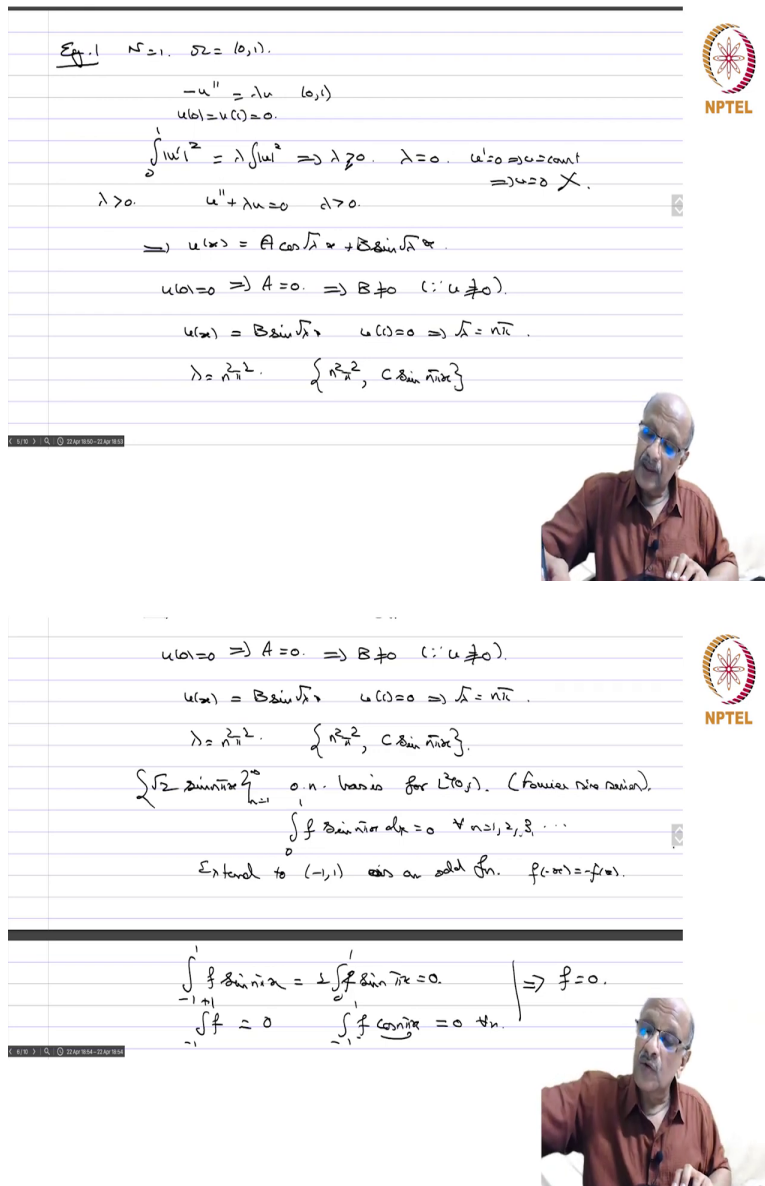 Eg. 1 N=1. Ω = (0,1).
-u'' = λu (0,1)
u(0)=u(1)=0.
NPTEL
∫₀¹|u'|² = λ∫|u|² => λ≥0. λ=0. u'=0 => u=const
=> u=0 X.
λ>0. u''+λu=0 λ>0.
=> u(x) = A cos√λ x + B sin√λ x.
u(0)=0 => A=0. => B≠0 (∵ u≠0).
u(x) = B sin√λ x u(1)=0 => √λ = nπ.
λ=n²π². {n²π², C sin nπx}
6/10 22 Apr 18:50 - 22 Apr 18:53
u(0)=0 => A=0. => B≠0 (∵ u≠0).
u(x) = B sin√λ x u(1)=0 => √λ = nπ.
NPTEL
λ=n²π². {n²π², C sin nπx}.
{√2 sin nπx}ₙ₌₁^∞ o.n. basis for L²(0,1). (Fourier sine series).
∫₀¹ f sin nπx dx = 0 ∀ n=1,2,3, ...
Extend to (-1,1) as an odd fn. f(-x)=-f(x).
∫₋₁¹ f sin nπx = 2∫₀¹ f sin πx = 0. => f=0.
∫₋₁⁺¹ f = 0 ∫₋₁¹ f cos nπx = 0 ∀n.
6/10 22 Apr 18:54 - 22 Apr 18:54